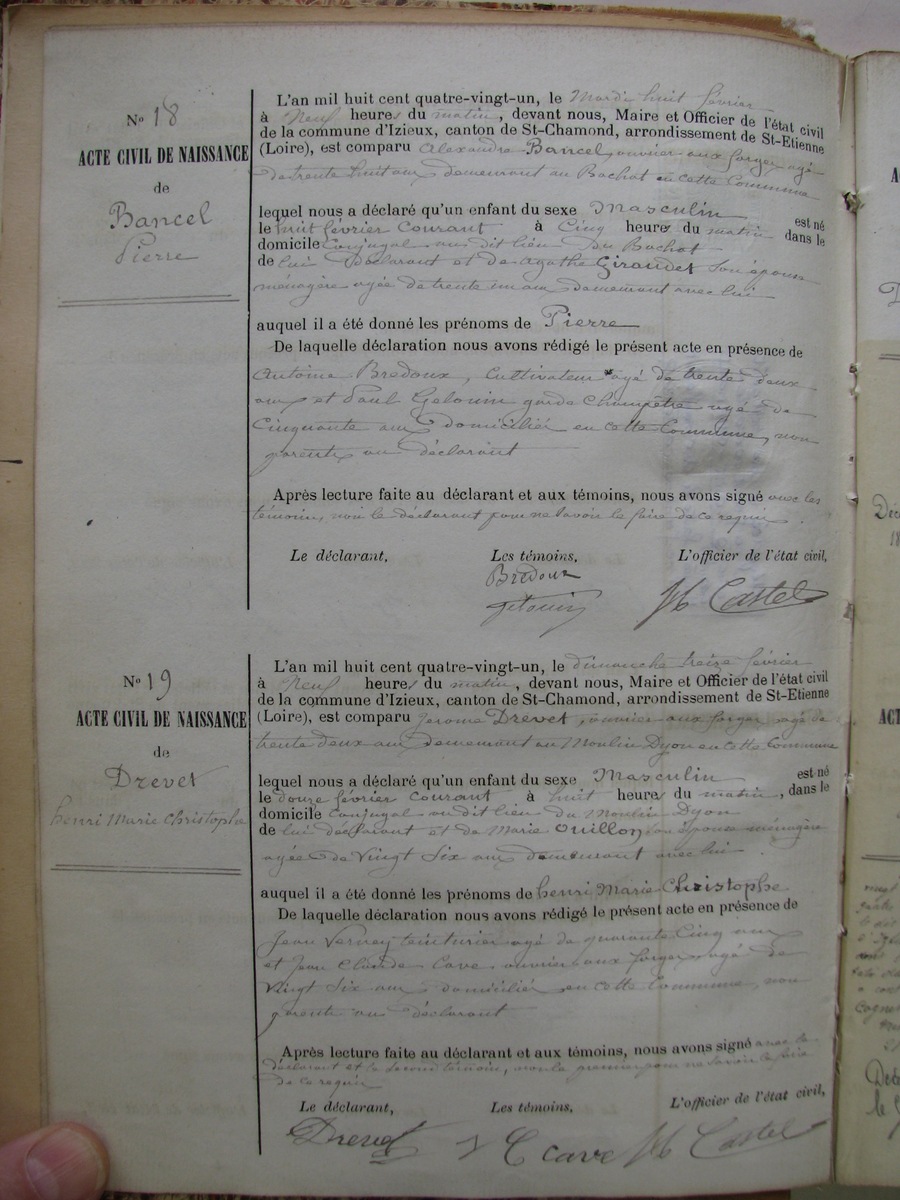 N° 18
ACTE CIVIL DE NAISSANCE
de
Bancel
Pierre
L'an mil huit cent quatre-vingt-un, le Mardi huit février
à Neuf heures du matin, devant nous, Maire et Officier de l'état civil
de la commune d'Izieux, canton de St-Chamond, arrondissement de St-Etienne
(Loire), est comparu Alexandre Bancel, ouvrier aux forges agé
de trente huit ans demeurant au Bachat en cette Commune
lequel nous a déclaré qu'un enfant du sexe Masculin est né
le huit février courant à Cinq heures du matin dans le
domicile Conjugal au dit lieu Du Bachat
de lui Déclarant et de Agathe Giraudet Son épouse
ménagère agée de trente un ans demeurant avec lui
auquel il a été donné les prénoms de Pierre
De laquelle déclaration nous avons rédigé le présent acte en présence de
Antoine Bredoux, Cultivateur agé de trente deux
ans et Paul Gelouin garde champêtre agé de
Cinquante ans Domiciliés en cette Commune, non
parents au déclarant
Après lecture faite au déclarant et aux témoins, nous avons signé avec les
témoins, non le déclarant pour ne savoir le faire de ce requis.
Le déclarant, Les témoins, L'officier de l'état civil,
Bredoux
Gelouin Castel
N° 19
ACTE CIVIL DE NAISSANCE
de
Drevet
henri Marie Christophe
L'an mil huit cent quatre-vingt-un, le dimanche treize février
à Neuf heures du matin, devant nous, Maire et Officier de l'état civil
de la commune d'Izieux, canton de St-Chamond, arrondissement de St-Etienne
(Loire), est comparu Jerome Drevet, ouvrier aux forges agé de
trente deux ans demeurant au Moulin Dyon en cette Commune
lequel nous a déclaré qu'un enfant du sexe Masculin est né
le douze février courant à huit heures du matin, dans le
domicile Conjugal au dit lieu du Moulin Dyon
de lui déclarant et de Marie Ouillon, son épouse ménagère
agée de Vingt Six ans demeurant avec lui
auquel il a été donné les prénoms de henri Marie Christophe
De laquelle déclaration nous avons rédigé le présent acte en présence de
Jean Verney teinturier agé de quarante Cinq ans
et Jean Claude Cave ouvrier aux forges agé de
Vingt Six ans domiciliés en cette Commune, non
parents au déclarant
Après lecture faite au déclarant et aux témoins, nous avons signé avec le
déclarant et le second témoin, non le premier pour ne savoir le faire
de ce requis
Le déclarant, Les témoins, L'officier de l'état civil,
Drevet J C cave Castel